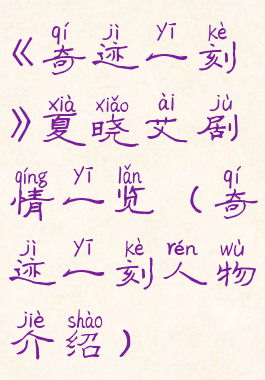 qí jì yī kè
《奇迹一刻
xià xiǎo ài jù
》夏晓艾剧
qíng yī lǎn qí
情一览（奇
jì yī kè rén wù
迹一刻人物
jiè shào
介绍）